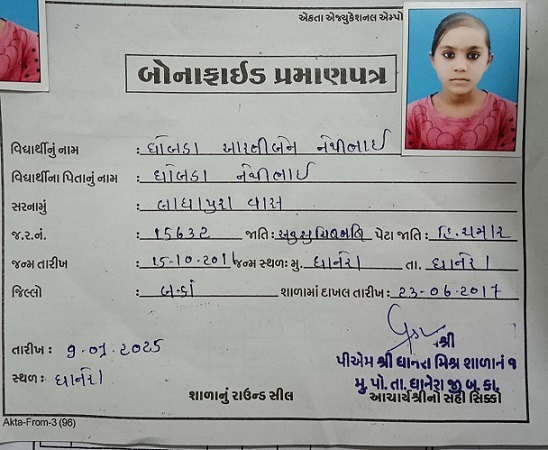 એકતા એજ્યુકેશનલ એમ્પો
બોનાફાઈડ પ્રમાણપત્ર
વિદ્યાર્થીનું નામ : ધોબડા આરતીબેન નથીભાઈ
વિદ્યાર્થીના પિતાનું નામ : ધોબડા નથીભાઈ
સરનામું : લાધાપુરા વાસ
જ.ર.નં. : 15632 જાતિ : અનુસુચિતજાતિ પેટા જાતિ : હિ.ચમાર
જન્મ તારીખ : 15-10-2011 જન્મ સ્થળ: મુ. ધાનેરા તા. ધાનેરા
જિલ્લો : બ.કાં શાળામાં દાખલ તારીખ : 23-06-2017
તારીખ : 9.07.2025
સ્થળ : ધાનેરા
શ્રી
પીએમ શ્રી ધાનેરા મિશ્ર શાળાનં ૧
મુ. પો. તા. ધાનેરા જી. બ. કાં.
શાળાનું રાઉન્ડ સીલ આચાર્યશ્રીનો સહી સિક્કો
Akta-From-3 (96)